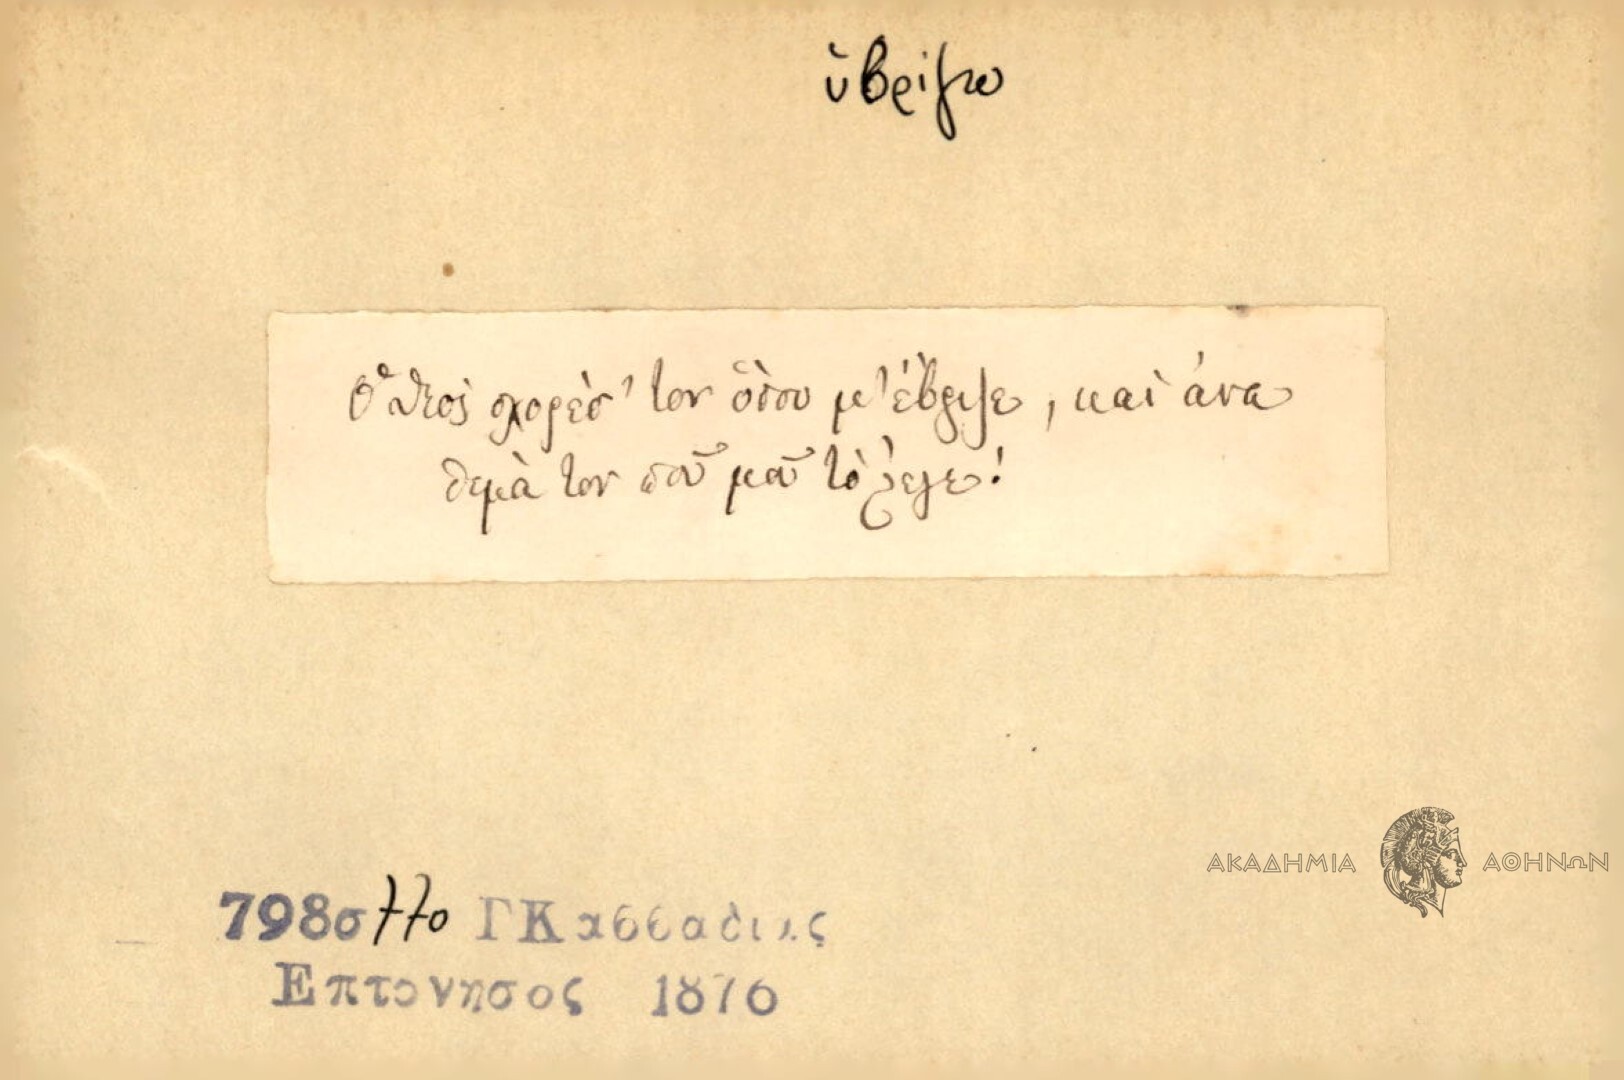 ὑβρίζω
Ὁ θεὸς σχορέσ' τον ὅπου μ' ἔβριζε, καὶ ἀνα
θεμὰ τον ποῦ μοῦ τὸ λεγε!
798σ 770 ΓΚασσαδιας
Επτανησος 1876
ΑΚΑΔΗΜΙΑ ΑΘΗΝΩΝ